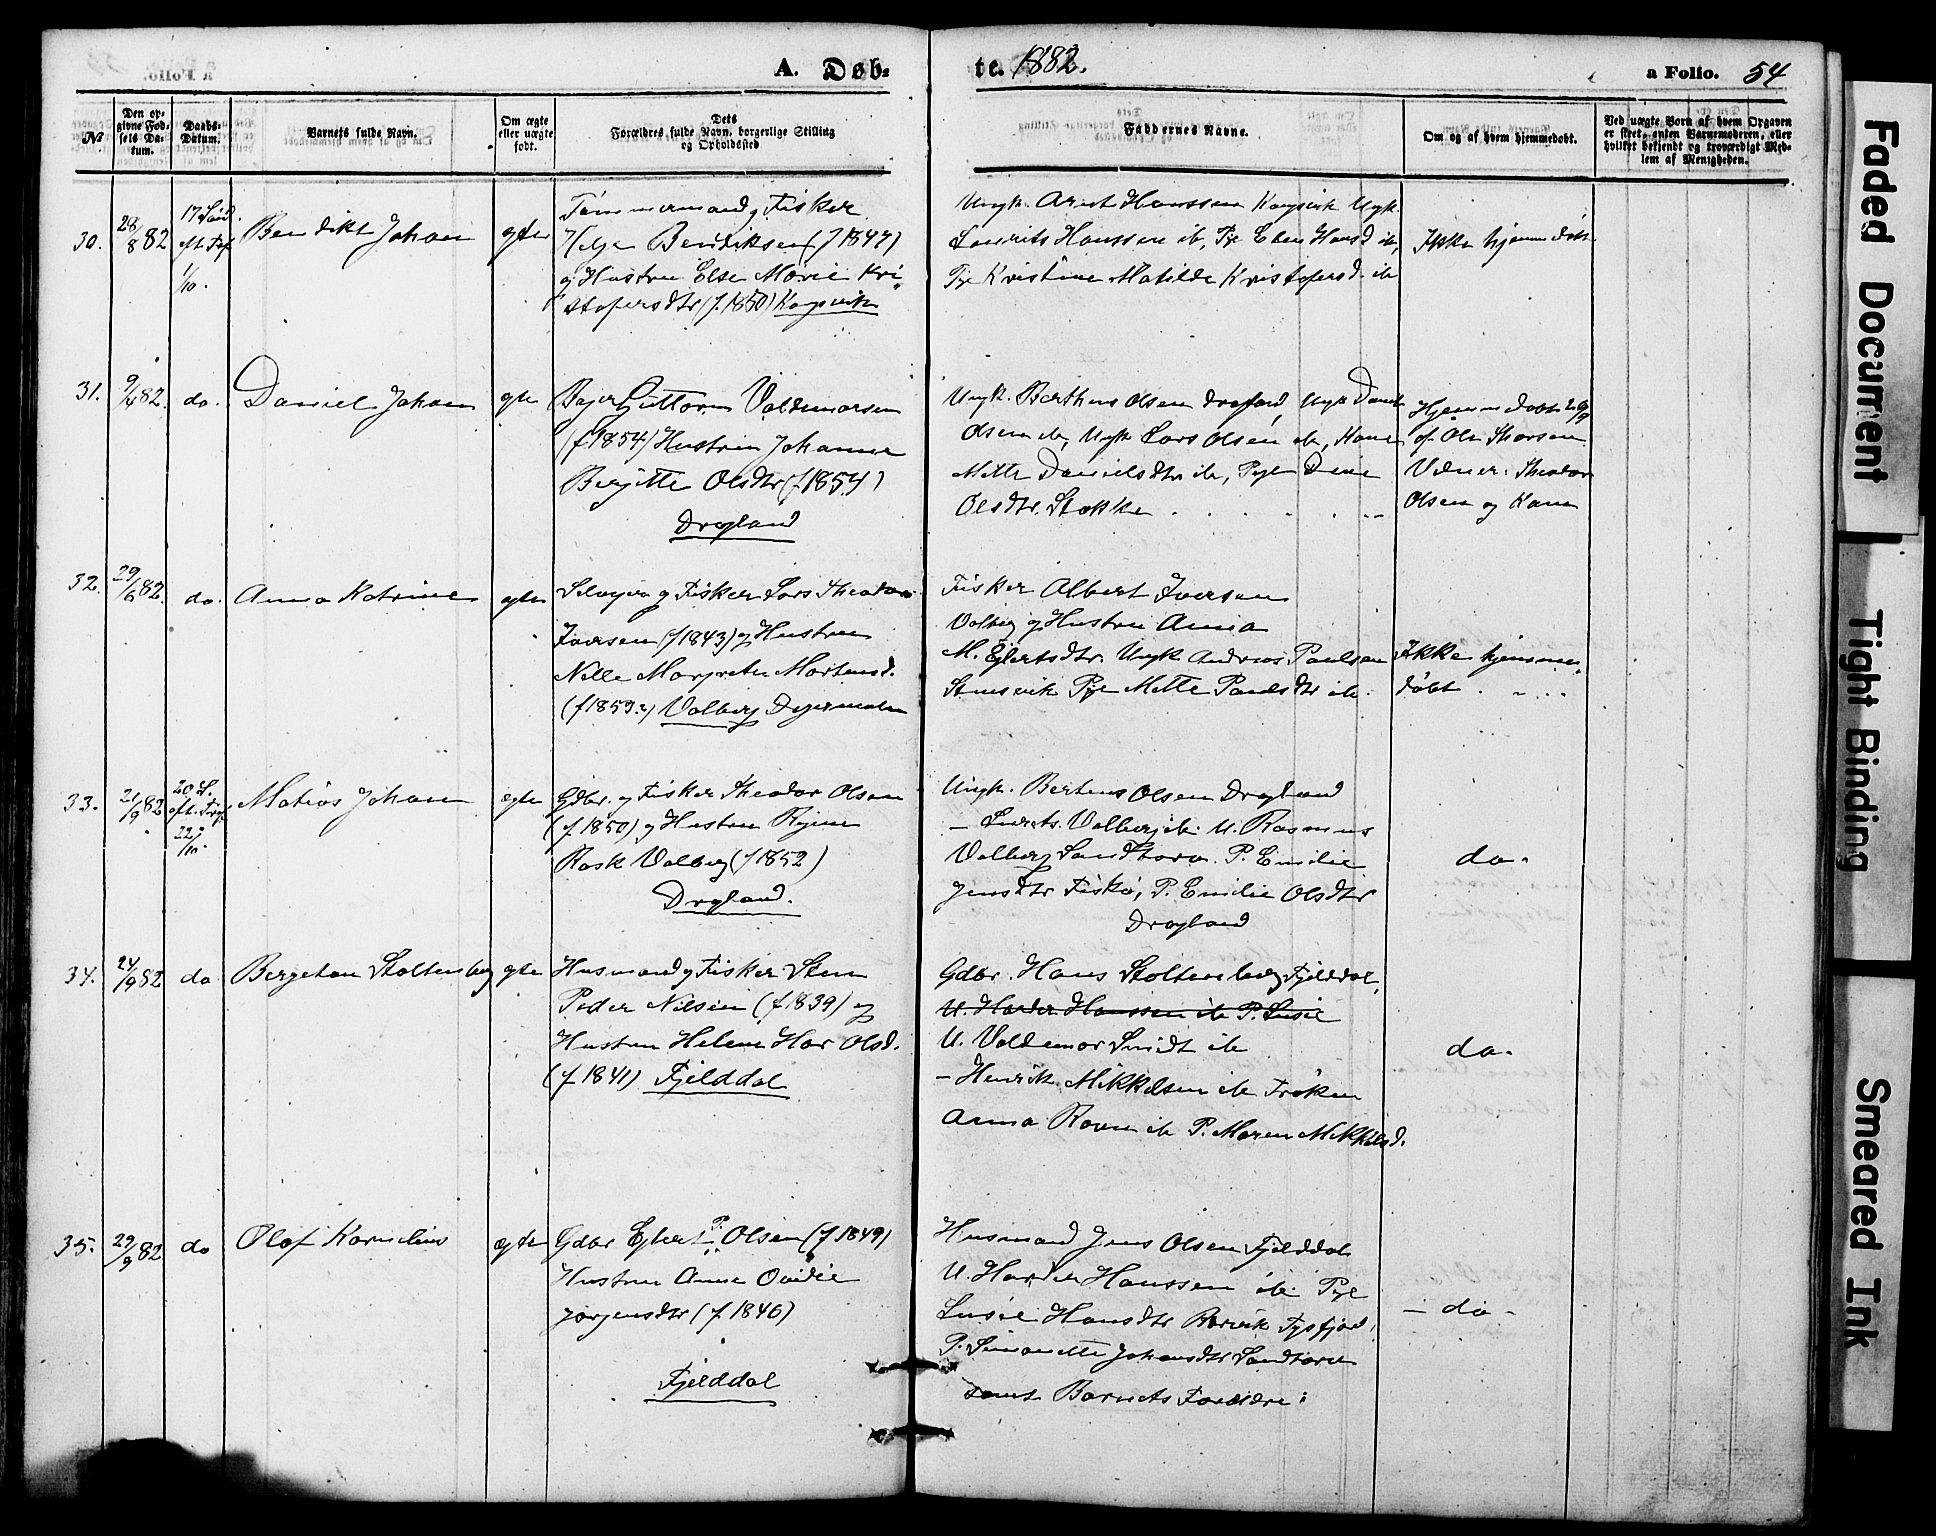 A. Døb-
te. 1882.
a Folio. 54
№
Den op-
givne Fød-
sels Da-
tum.
Daabs-
Datum.
Barnets fulde Navn.
Om ægte
eller uægte
født.
Dets
Forældres fulde Navn, borgerlige Stilling
og Opholdssted
Faddernes Navne.
Om og af hvem hjemmedøbt.
Ved uægte Børn af hvem Opgaven
er skeet, enten Barnemoderen, eller
hvilket bekjendt og troværdigt Med-
lem af Menigheden.
30. 28/8 82
17 Sönd.
eft. Tref
1/10.
Bendikt Johan
egte
Tömmermand og Fisker
Helge Bendiksen (f 1847)
og Hustru Else Marie Kri-
stofersdtr (f. 1850) Kongsvik
Ungk. Arnt Hanssen Kongsvik Ungk.
Laurits Hanssen ib, Pge Ellen Hansd ib,
Pge Kristine Matilde Kristofersd. ib
Ikke hjemmedöbt
31. 9/4 82. do. Daniel Johan egte
Guttorm Valdemarsen
(f 1854) Hustru Johanne
Bergitte Olsdtr (f 1854)
Dragland
Ungk. Barthens Olsen Dragland, Ungk Daniel
Olsen ib, Ungk Lars Olsen ib, Kone
Mette Danielsdtr ib, Pge
Olsdtr. Stokke
Hjemmedöbt
af Ole Thorsen
Vidner: Theodor
Olsen og Kone
32. 29/6 82. do. Anna Katrine egte
Selveier og Fisker Lars Theodor
Iversen (f 1843) og Hustru
Nille Margrete Mortensd.
(f 1859.) Valberg
Fisker Albert Iversen
Valberg og Hustru Anna
M. Ejlertsdtr. Ungk Andreas Paulsen
Pge Mette Paulsdtr ib.
Ikke hjemme-
döbt
33. 21/9 82
20 S.
eft. Tref
22/10.
Matias Johan
egte
Gdbr. og Fisker Theodor Olsen
(f. 1850) og Hustru
Rask Valberg (f 1852)
Dragland.
Ungk. Bertens Olsen Dragland
— Laurits Valberg ib. U. Rasmus
Valberg Sandtorv. P. Emilie
Jensdtr Fiskö, P. Emilie Olsdtr
Dragland
do.
34. 24/9 82 do Bergeton Stoltenberg egte
Husmand og Fisker Sten
Peder Nilsen (f. 1839) og
Hustru Helene Olsd.
(f. 1841) Fjelddal
Gdbr. Hans Stoltenberg Fjelddal,
U. Harder Hanssen ib P. Lusie
U. Valdemar Smidt ib
— Henrik Mikkelsen ib Fröken
Anna Ravn ib P. Maren Mikkelsd.
do.
35. 29/9 82 do Olaf Kornelius egte
Gdbr Ejlert P. Olsen (f 1849)
Hustru Anne Ovidie
Jörgensdtr (f. 1846)
Fjelddal
Husmand Jens Olsen Fjelddal
U. Harder Hanssen ib. Pge
Lusie Hansdtr Tysfjord,
P. Simonette Johansdtr Sandtorv
samt Barnets Forældre.
— do -
Faded Document
Tight Binding
Smeared Ink